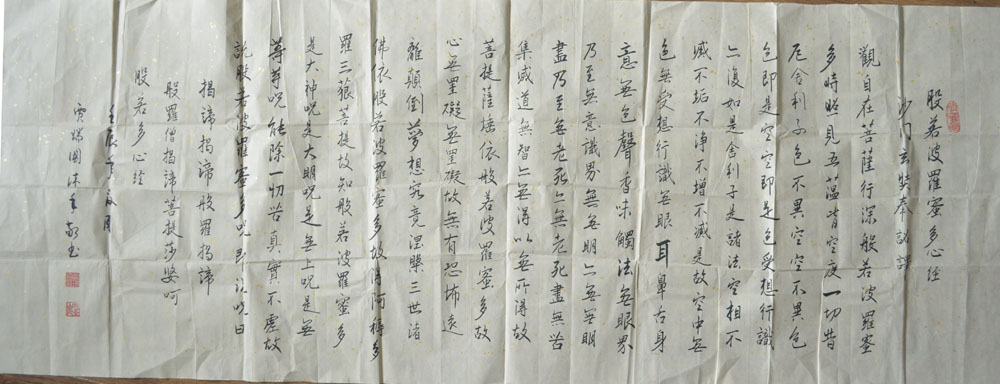 般若波羅蜜多心经
沙门玄奘奉詔譯
觀自在菩薩行深般若波羅蜜
多時照見五蕴皆空度一切苦
厄舍利子色不異空空不異色
色即是空空即是色受想行識
亦復如是舍利子是諸法空相不
滅不垢不净不增不减是故空中無
色無受想行識無眼耳鼻舌身
意無色聲香味觸法無眼界
乃至無意識界無無明亦無無明
盡乃至無老死亦無老死盡無苦
集滅道無智亦無得以無所得故
菩提薩埵依般若波羅蜜多故
心無罣礙無罣礙故無有恐怖遠
離顛倒夢想究竟涅槃三世诸
佛依般若波羅蜜多故得阿耨多
羅三藐菩提故知般若波羅蜜多
是大神呪是大明呪是無上呪是無
等等呪能除一切苦真實不虚故
説般若波羅蜜多呪即说呪曰
揭諦揭諦般羅揭諦
般羅僧揭諦菩提莎婆呵
般若多心经
壬辰年
敬书